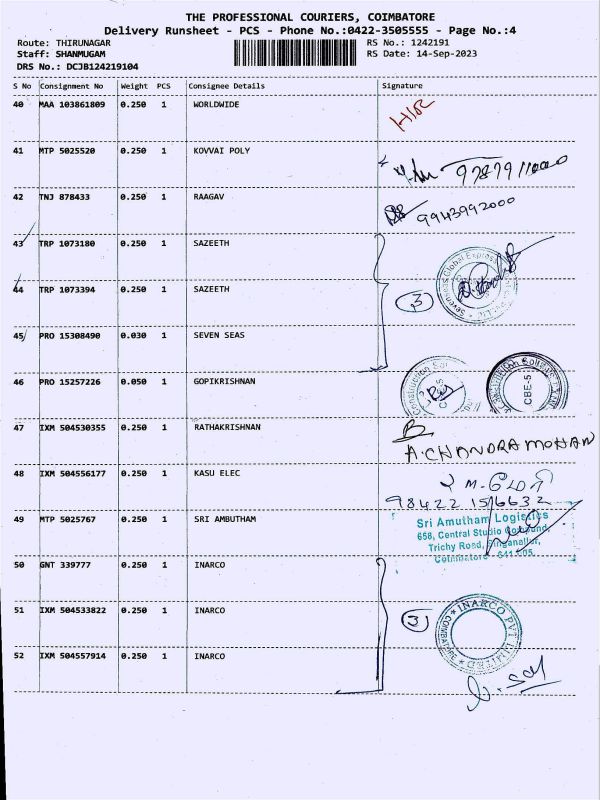 THE PROFESSIONAL COURIERS, COIMBATORE
Delivery Runsheet - PCS - Phone No.:0422-3505555 - Page No.:4
Route: THIRUNAGAR RS No.: 1242191
Staff: SHANMUGAM RS Date: 14-Sep-2023
DRS No.: DCJB124219104
S No Consignment No Weight PCS Consignee Details Signature
40 MAA 103861809 0.250 1 WORLDWIDE
41 MTP 5025520 0.250 1 KOVVAI POLY
42 TNJ 878433 0.250 1 RAAGAV 9943992000
43 TRP 1073180 0.250 1 SAZEETH
44 TRP 1073394 0.250 1 SAZEETH 3
45 PRO 15308490 0.030 1 SEVEN SEAS
46 PRO 15257226 0.050 1 GOPIKRISHNAN CBE-5
47 IXM 504530355 0.250 1 RATHAKRISHNAN A.CHANDRAMOHAN
48 IXM 504556177 0.250 1 KASU ELEC
49 MTP 5025767 0.250 1 SRI AMBUTHAM
Sri Amutham Logistics
658, Central Studio Compound,
Trichy Road, Singanallur,
Coimbatore - 641 005.
50 GNT 339777 0.250 1 INARCO
51 IXM 504533822 0.250 1 INARCO 3
INARCO PVT LIMITED COIMBATORE
52 IXM 504557914 0.250 1 INARCO